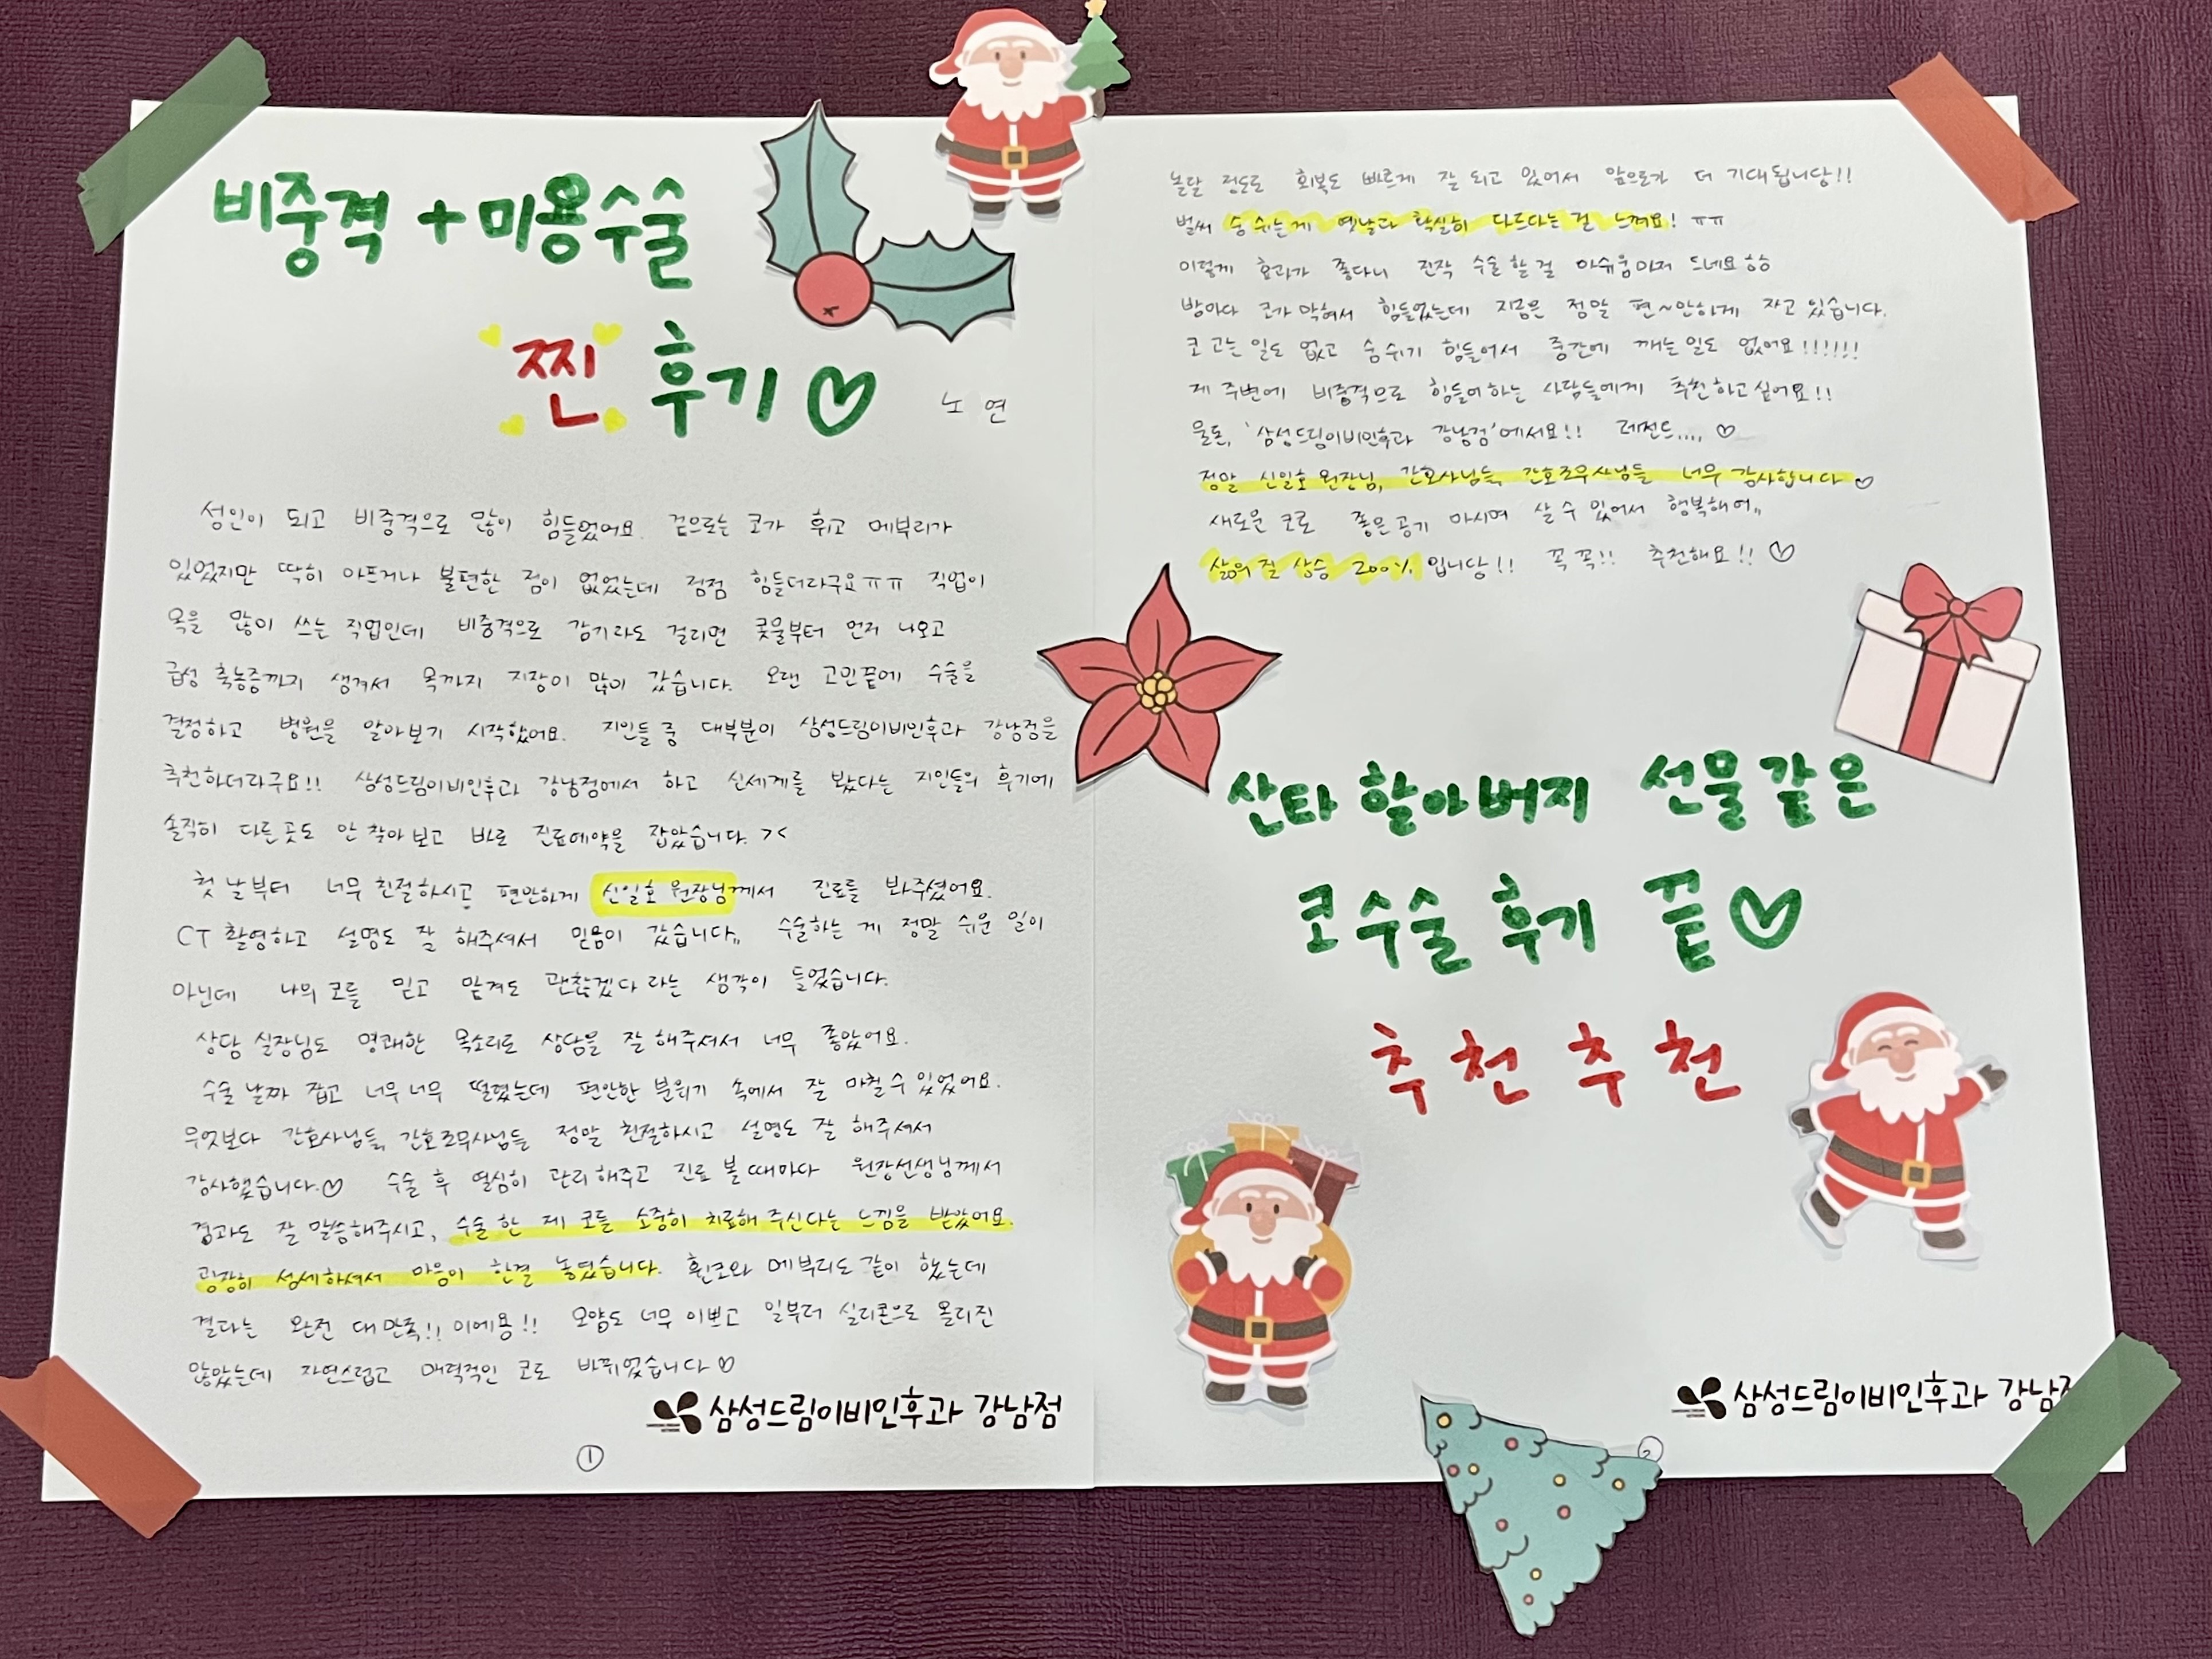 비중격 + 미용수술
찐 후기 ♡
노 연
성인이 되고 비중격으로 많이 힘들었어요. 겉으로는 코가 휘고 메부리가
있었지만 딱히 아프거나 불편한 점이 없었는데 점점 힘들더라구요ㅠㅠ 직업이
목을 많이 쓰는 직업인데 비중격으로 감기라도 걸리면 콧물부터 먼저 나오고
급성 축농증까지 생겨서 목까지 지장이 많이 갔습니다. 오랜 고민끝에 수술을
결정하고 병원을 알아보기 시작했어요. 지인들 중 대부분이 삼성드림이비인후과 강남점을
추천하더라구요!! 삼성드림이비인후과 강남점에서 하고 신세계를 봤다는 지인들의 후기에
솔직히 다른곳도 안 찾아보고 바로 진료예약을 잡았습니다. ><
첫 날부터 너무 친절하시고 편안하게 신일호 원장님께서 진료를 봐주셨어요.
CT 촬영하고 설명도 잘 해주셔서 믿음이 갔습니다,, 수술하는 게 정말 쉬운 일이
아닌데 나의 코를 믿고 맡겨도 괜찮겠다 라는 생각이 들었습니다.
상담 실장님도 명쾌한 목소리로 상담을 잘 해주셔서 너무 좋았어요.
수술 날짜 잡고 너무너무 떨렸는데 편안한 분위기 속에서 잘 마칠 수 있었어요.
무엇보다 간호사님들, 간호조무사님들 정말 친절하시고 설명도 잘 해주셔서
감사했습니다.♡ 수술 후 열심히 관리해주고 진료 볼 때마다 원장선생님께서
경과도 잘 말씀해주시고, 수술 한 제 코를 소중히 치료해 주신다는 느낌을 받았어요.
굉장히 섬세하셔서 마음이 한결 놓였습니다. 휜코와 메부리도 같이 했는데
결과는 완전 대만족!! 이에용!! 모양도 너무 이쁘고 일부러 실리콘으로 올리진
않았는데 자연스럽고 매력적인 코로 바뀌었습니다♡
삼성드림이비인후과 강남점
①
놀랄 정도로 회복도 빠르게 잘 되고 있어서 앞으로가 더 기대됩니당!!
벌써 숨 쉬는게 옛날과 확실히 다르다는 걸 느껴요! ㅠㅠ
이렇게 효과가 좋다니 진작 수술 할 걸 아쉬움마저 드네요ㅎㅎ
밤마다 코가 막혀서 힘들었는데 지금은 정말 편~안하게 자고 있습니다.
코 고는 일도 없고 숨 쉬기 힘들어서 중간에 깨는 일도 없어요!!!!!!
제 주변에 비중격으로 힘들어하는 사람들에게 추천하고싶어요!!
물론, '삼성드림이비인후과 강남점'에서요!! 레전드.... ♡
정말 신일호 원장님, 간호사님들, 간호조무사님들 너무 감사합니다 ♡
새로운 코로 좋은공기 마시며 살 수 있어서 행복해여,,
삶의 질 상승 200% 입니당!! 꼭 꼭!! 추천해요!! ♡
산타 할아버지 선물 같은
코수술 후기 끝 ♡
추 천 추 천
삼성드림이비인후과 강남점
②